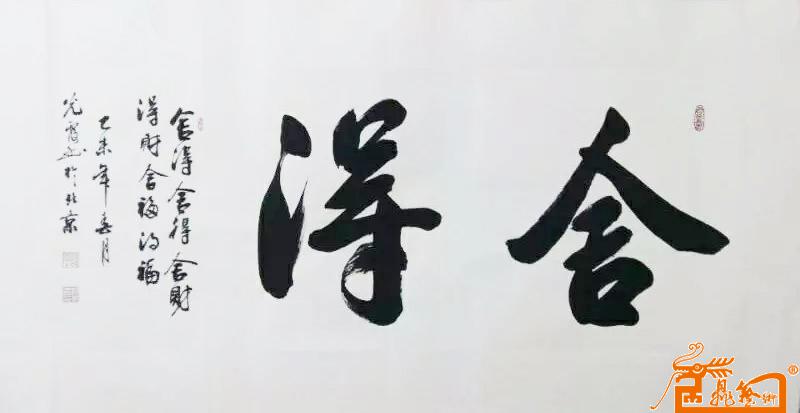 舍得
舍得舍得舍财
得财舍福得福
乙未年春月
书於北京